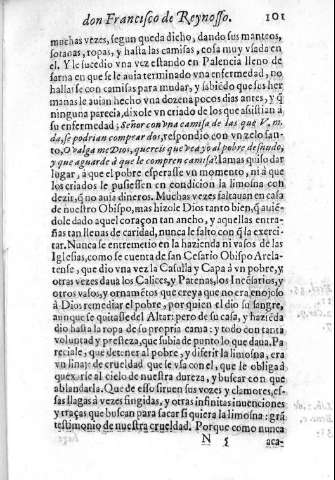 don Francisco de Reynosso. 101
muchas vezes, segun queda dicho, dando sus manteos,
sotanas, ropas, y hasta las camisas, cosa muy vsada en
el. Y le sucedio vna vez estando en Palencia lleno de
sarna en que se le auia terminado vna enfermedad, no
hallarse con camisas para mudar, y sabiẽdo que sus her
manas le auian hecho vna dozena pocos dias antes, y q̃
ninguna parecia, dixole vn criado de los que assistian à
su enfermedad, Señor con vna camisa de las que V. m.
da, se podrian comprar dos, respondio con vn zelo san-
to, O valga me Dios, quereis que vea yo al pobre desnudo,
y que aguarde à que le compren camisa? Iamas quiso dar
lugar, à que el pobre esperasse vn momento, ni à que
los criados le pusiessen en condicion la limosna con
dezir, q̃ no auia dineros. Muchas vezes faltauan en casa
de nuestro Obispo, mas hizole Dios tanto bien, q̃ auiẽ-
dole dado aquel coraçon tan ancho, y aquellas entra-
ñas tan llenas de caridad, nunca le falto con q̃ la exerci-
tar. Nunca se entremetio en la hazienda ni vasos de las
Iglesias, como se cuenta de san Cesario Obispo Arela-
tense, que dio vna vez la Casulla y Capa à vn pobre, y
otras vezes daua los Calices, y Patenas, los Incẽsarios, y
otros vasos, y ornamẽtos que creya que no era enojoso
à Dios remediar el pobre, por quien el dio su sangre,
aunque se quitasse del Altar: pero de su casa, y haziẽda
dio hasta la ropa de su propria cama: y todo con tanta
voluntad y presteza, que subia de punto lo que daua. Pa
reciale, que detener al pobre, y diferir la limosna, era
vn linaje de crueldad que se vsa con el, que le obliga à
quexarse al cielo de nuestra dureza, y buscar con que
ablandarla. Que de esso siruen sus vozes y clamores, es-
sas llagas à vezes fingidas, y otras infinitas inuenciones
y traças que buscan para sacar si quiera la limosna: grã
testimonio de nuestra crueldad. Porque como nunca
N 5 aca-